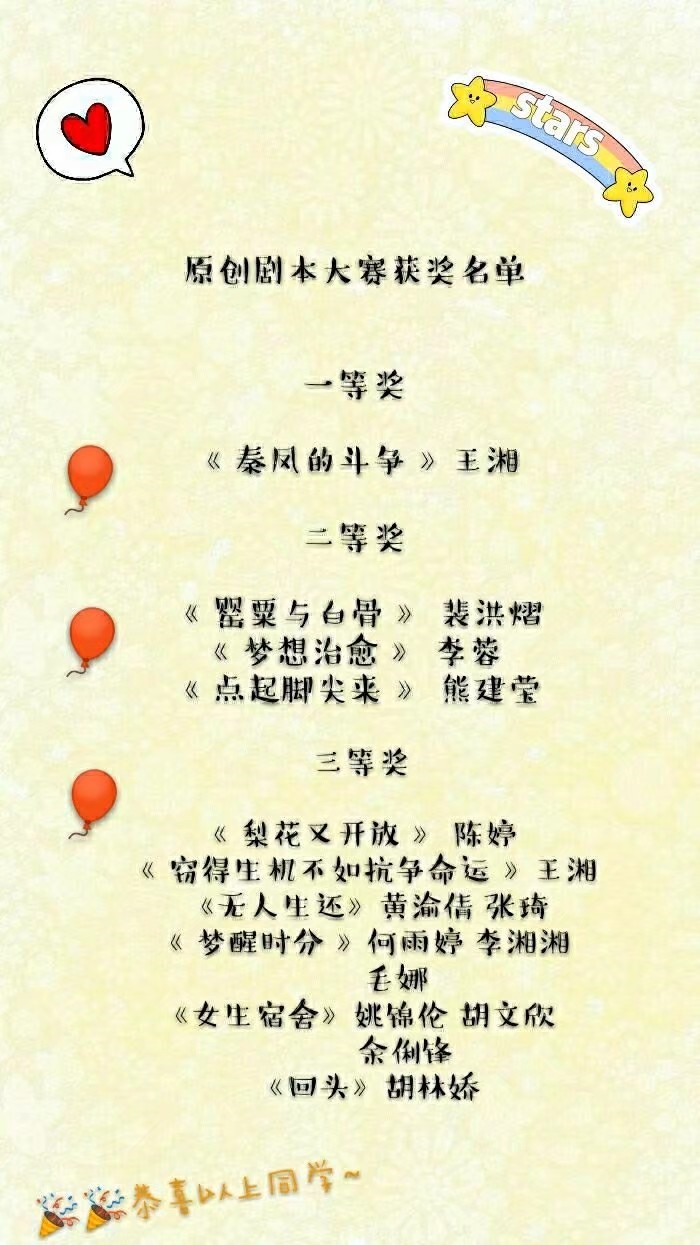 stars
原创剧本大赛获奖名单
一等奖
《 秦凤的斗争 》 王湘
二等奖
《 罂粟与白骨 》 裴洪熠
《 梦想治愈 》 李蓉
《 点起脚尖来 》 熊建莹
三等奖
《 梨花又开放 》 陈婷
《 窃得生机不如抗争命运 》 王湘
《无人生还》 黄渝倩 张琦
《 梦醒时分 》 何雨婷 李湘湘
毛娜
《女生宿舍》 姚锦伦 胡文欣
余俐锋
《回头》 胡林娇
恭喜以上同学~